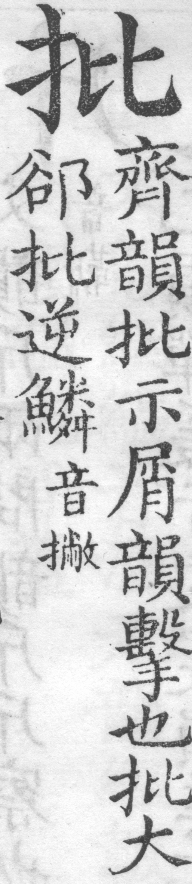 批
齊韻批示屑韻擊也批大
郤批逆鱗音撇